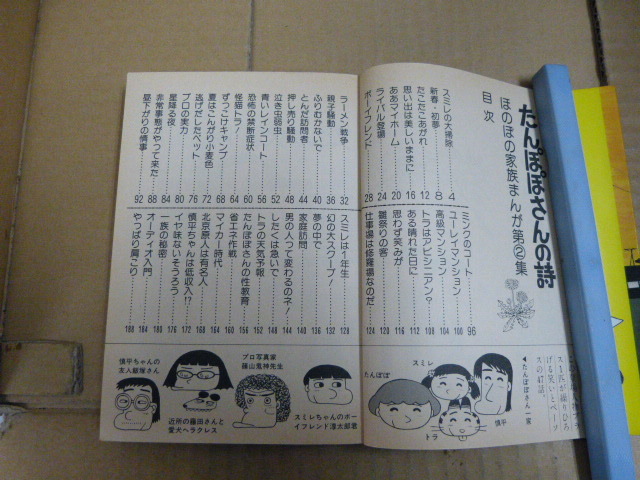 たんぽぽさんの詩
ほのぼの家族まんが第②集
目次
スミレの大掃除 4
新春・初夢 8
たこたこあがれ 12
思い出は美しいままに 16
ああマイホーム 20
ライバル登場 24
ボーイフレンド 28
ラーメン戦争 32
親子騒動 36
ふりむかないで 40
とんだ訪問者 44
押し売り騒動 48
泣き虫弱虫 52
青いレインコート 56
恐怖の禁断症状 60
怪猫トラ! 64
ずっこけキャンプ 68
夏はこんがり小麦色 72
逃げだしたペット 76
プロの実力 80
星降る夜 84
非常事態がやって来た 88
昼下がりの情事 92
ミンクのコート 96
ユーレイマンション 100
高級マンション 104
トラはアビシニアン? 108
ある晴れた日に 112
思わず笑みが 116
雛祭りの客 120
仕事場は修羅場なのだ 124
スミレは1年生 128
幻の大スクープ! 132
夢の中で 136
家庭訪問 140
男の人って変わるのネ! 144
したくは急いで 148
トラの天気予報 152
たんぽぽさんの性教育 156
省エネ作戦 160
マイカー時代 164
北京原人は有名人 168
慎平ちゃんは低収入!? 172
イヤ味ないそうろう 176
一族の秘密 180
オーディオ入門 184
やっぱり肩こり 188
◀たんぽぽさん一家
スミレ
たんぽぽ
トラ
慎平
スミレちゃんのボーイフレンド淳太郎君
プロ写真家
藤山鬼神先生
近所の藤田さんと
愛犬ヘラクレス
慎平ちゃんの
友人飯塚さん
1匹が繰りひろ
げる笑いとペーソ
スの47話。